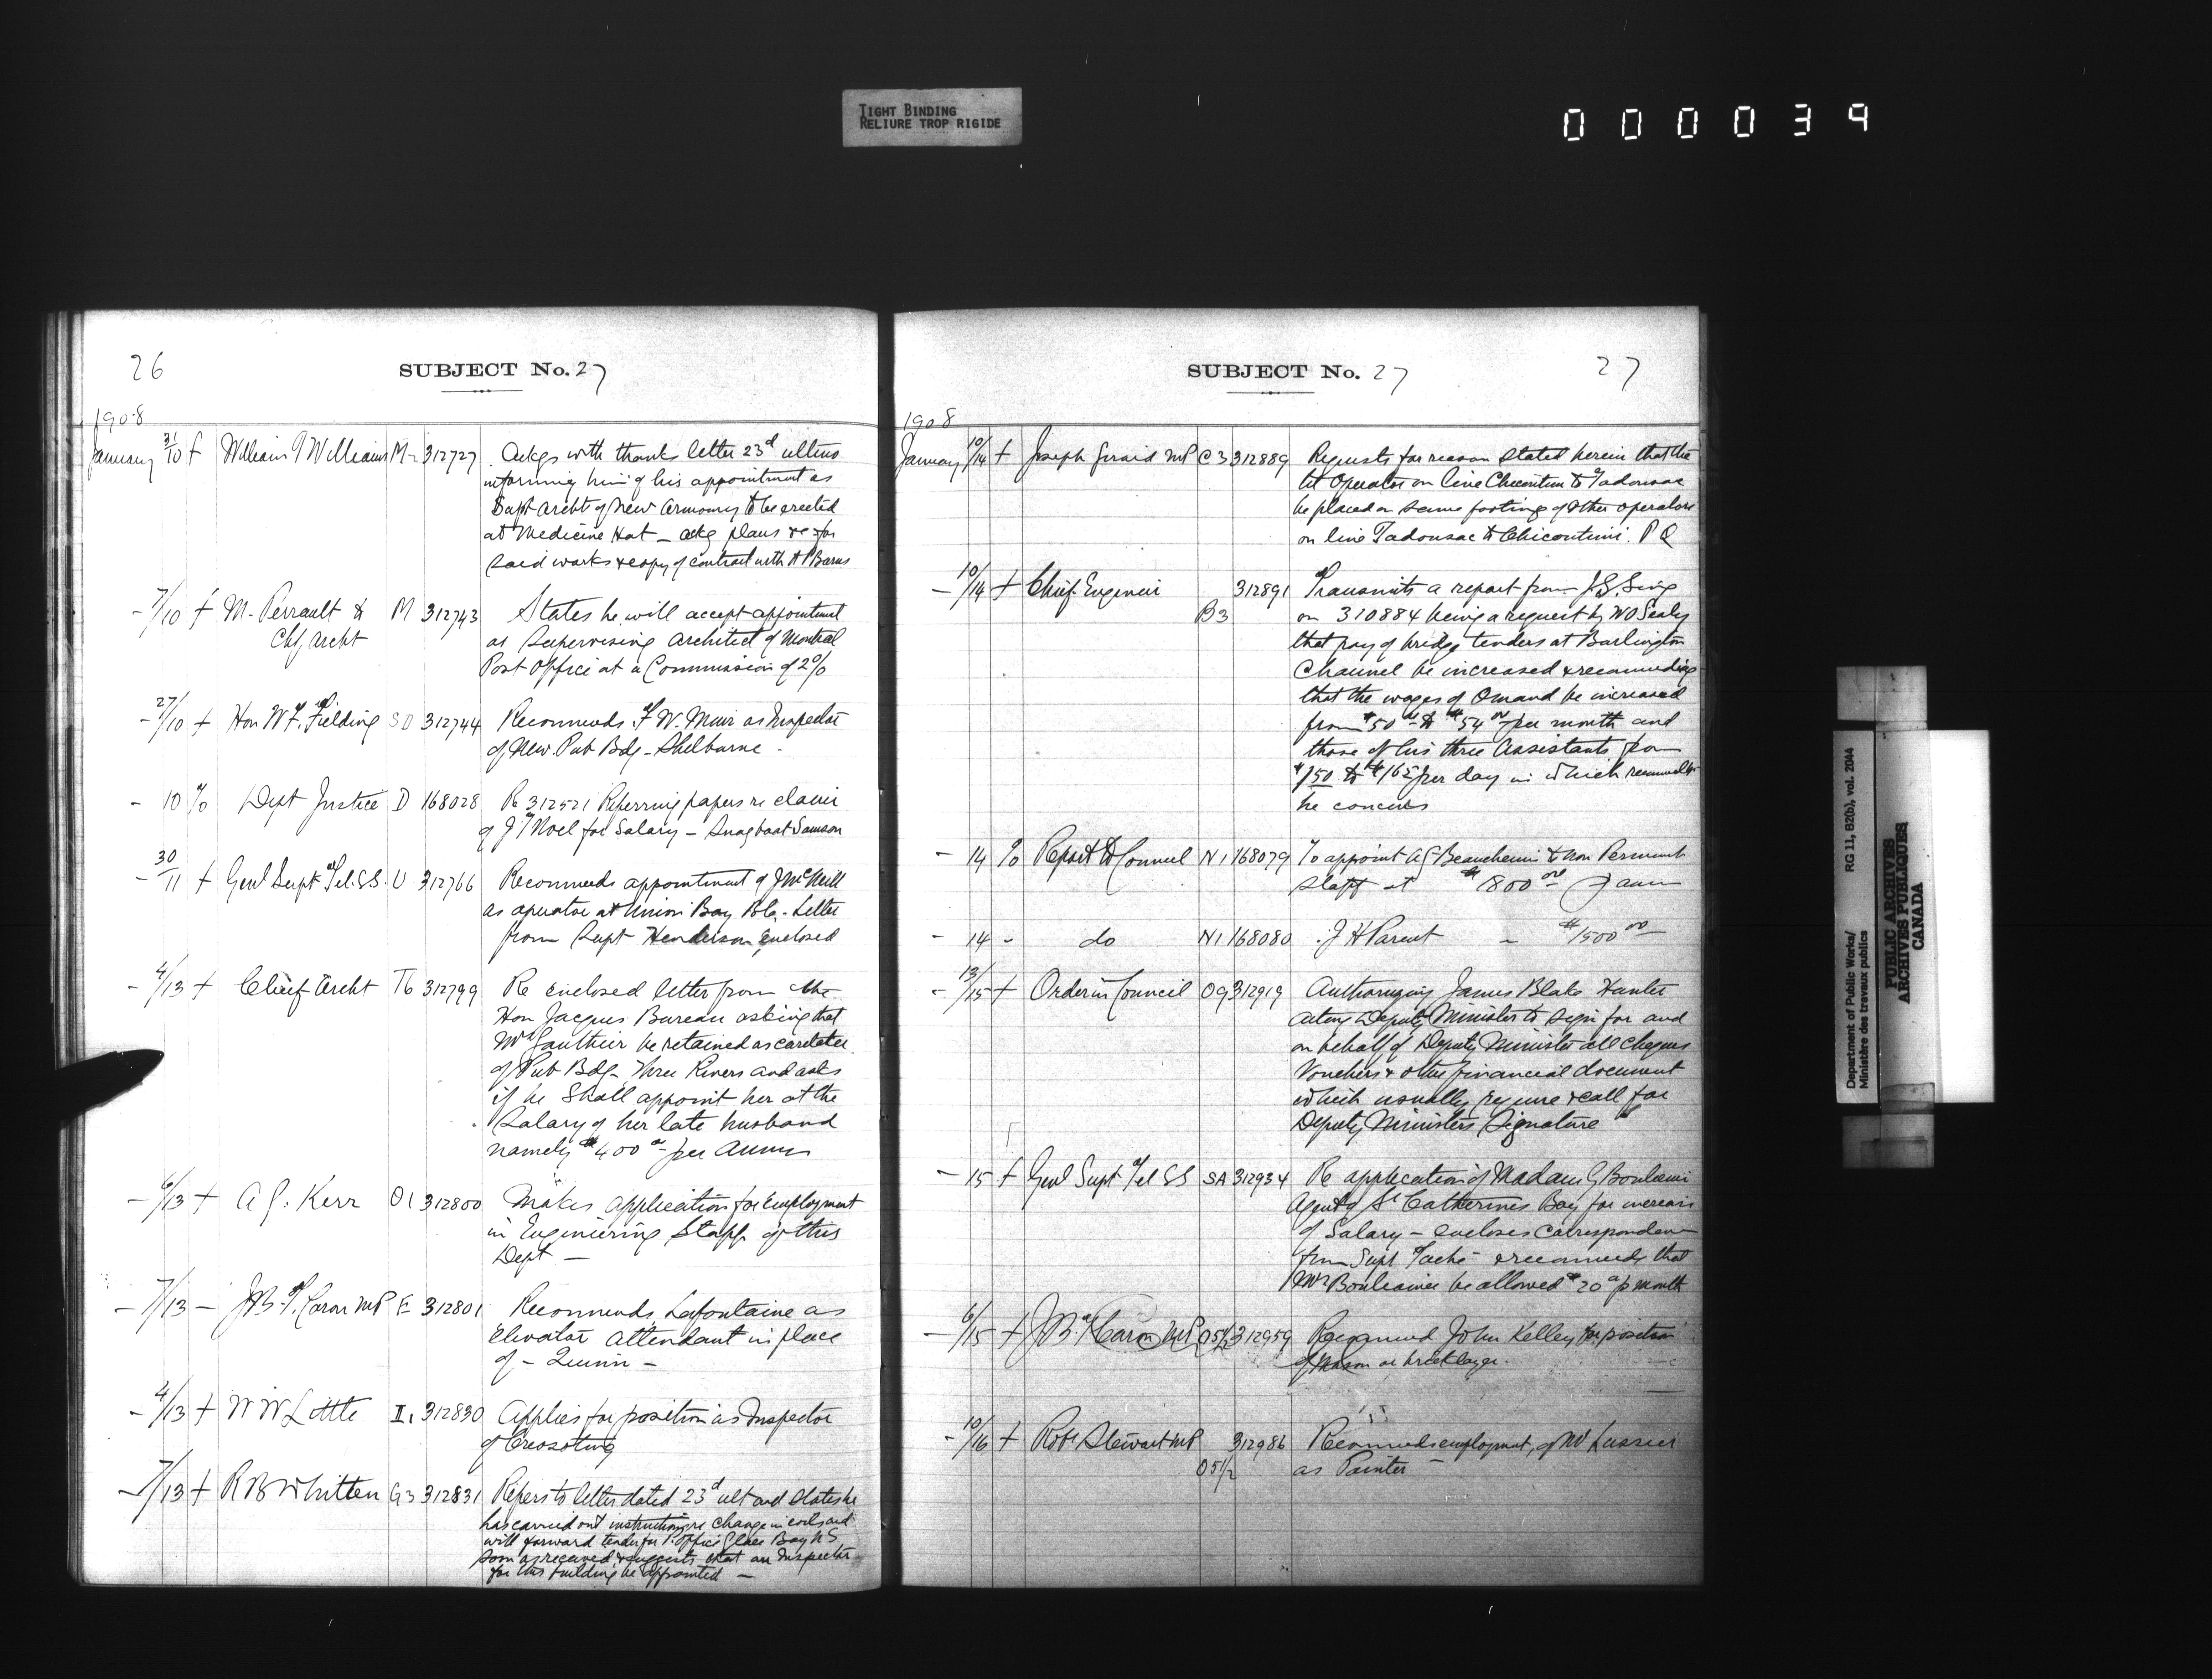 TIGHT BINDING
RELIURE TROP RIGIDE
000039
26
SUBJECT No. 27
1908
January 31/10 + William T Williams M2 312727 Ackgs with thanks letter 23d ultimo
informing him of his appointment as
Supt Archt of New Armoury to be erected
at Medicine Hat - ackg plans &c for
said works & copy of contract with H P Barnes
- 7/10 + M. Perrault & M 312743 States he will accept appointment
Chf Archt as Supervising Architect of Montreal
Post Office at a Commission of 2%
- 27/10 + Hon W.F. Fielding SD 312744 Recommends F W. Muir as Inspector
of New Pub Bdg - Shelburne -
- 10 % Dept Justice D 168028 Re 312521 Referring papers re claim
of J. T Noel for Salary - Snagboat Samson
- 30/11 + Genl Supt Tel. S.S. U 312766 Recommends appointment of J McNeill
as operator at Union Bay B.C. - Letter
from Supt Henderson enclosed
- 4/13 + Chief Archt T6 312799 Re enclosed letter from the
Hon Jacques Bureau asking that
Mrs Gauthier be retained as caretaker
of Pub Bdg - Three Rivers and asks
if he shall appoint her at the
Salary of her late husband
namely $400 per annum
- 6/13 + A G. Kerr O1 312800 Makes application for employment
in Engineering Staff of this
Dept -
- 7/13 - J.B. T. Caron MP E 312801 Recommends Lafontaine as
Elevator Attendant in place
of - Quinn -
- 4/13 + W W Little I1 312830 Applies for position as Inspector
of Creosoting
- 7/13 + R B Whitten G3 312831 Refers to letter dated 23d ult and states he
has carried out instructions re change in coils and
will forward tender for P. Office Glace Bay N S
soon as received & suggests that an Inspector
for this building be appointed -
SUBJECT No. 27
27
1908
January 10/14 + Joseph Girard MP C3 312889 Requests for reason stated herein that the
tel operator on line Chicoutimi to Tadousac
be placed on same footing of other operators
on line Tadousac to Chicoutimi. P Q
- 10/14 + Chief Engineer 312891 Transmits a report from J.G. Sing
B3 on 310884 being a request by W O Sealy
that pay of bridge tenders at Burlington
Channel be increased & recommending
that the wages of Omand be increased
from $50 to $54 per month and
those of his three assistants from
$150 to $165 per day in which recommendn
he concurs
- 14 % Report to Council N1 168079 To appoint A G Beauchemin to non Permanent
staff at $1800
- 14 - do N1 168080 J H Parent - $1500
- 13/15 + Order in Council OG 312919 Authorizing James Blake Hunter
Acting Deputy Minister to sign for and
on behalf of Deputy Minister all cheques
Vouchers & other financial document
which usually require & call for
Deputy Ministers Signature
- 15 + Genl Supt Tel SS SA 312934 Re application of Madam G Boulianne
Agent of St Catherines Bay for increase
of Salary - encloses correspondence
from Supt Taché - & recommends that
Mrs Boulianne be allowed $20 p month
- 6/15 + J.B. T Caron MP O5 1/2 312959 Recommend John Kelley for position
of mason or bricklayer.
- 10/16 + Robt Stewart MP 312986 Recommends employment of W Lussier
O5 1/2 as Painter -
Department of Public Works/
Ministère des travaux publics
RG 11, B2(b), vol. 2044
PUBLIC ARCHIVES
ARCHIVES PUBLIQUES
CANADA